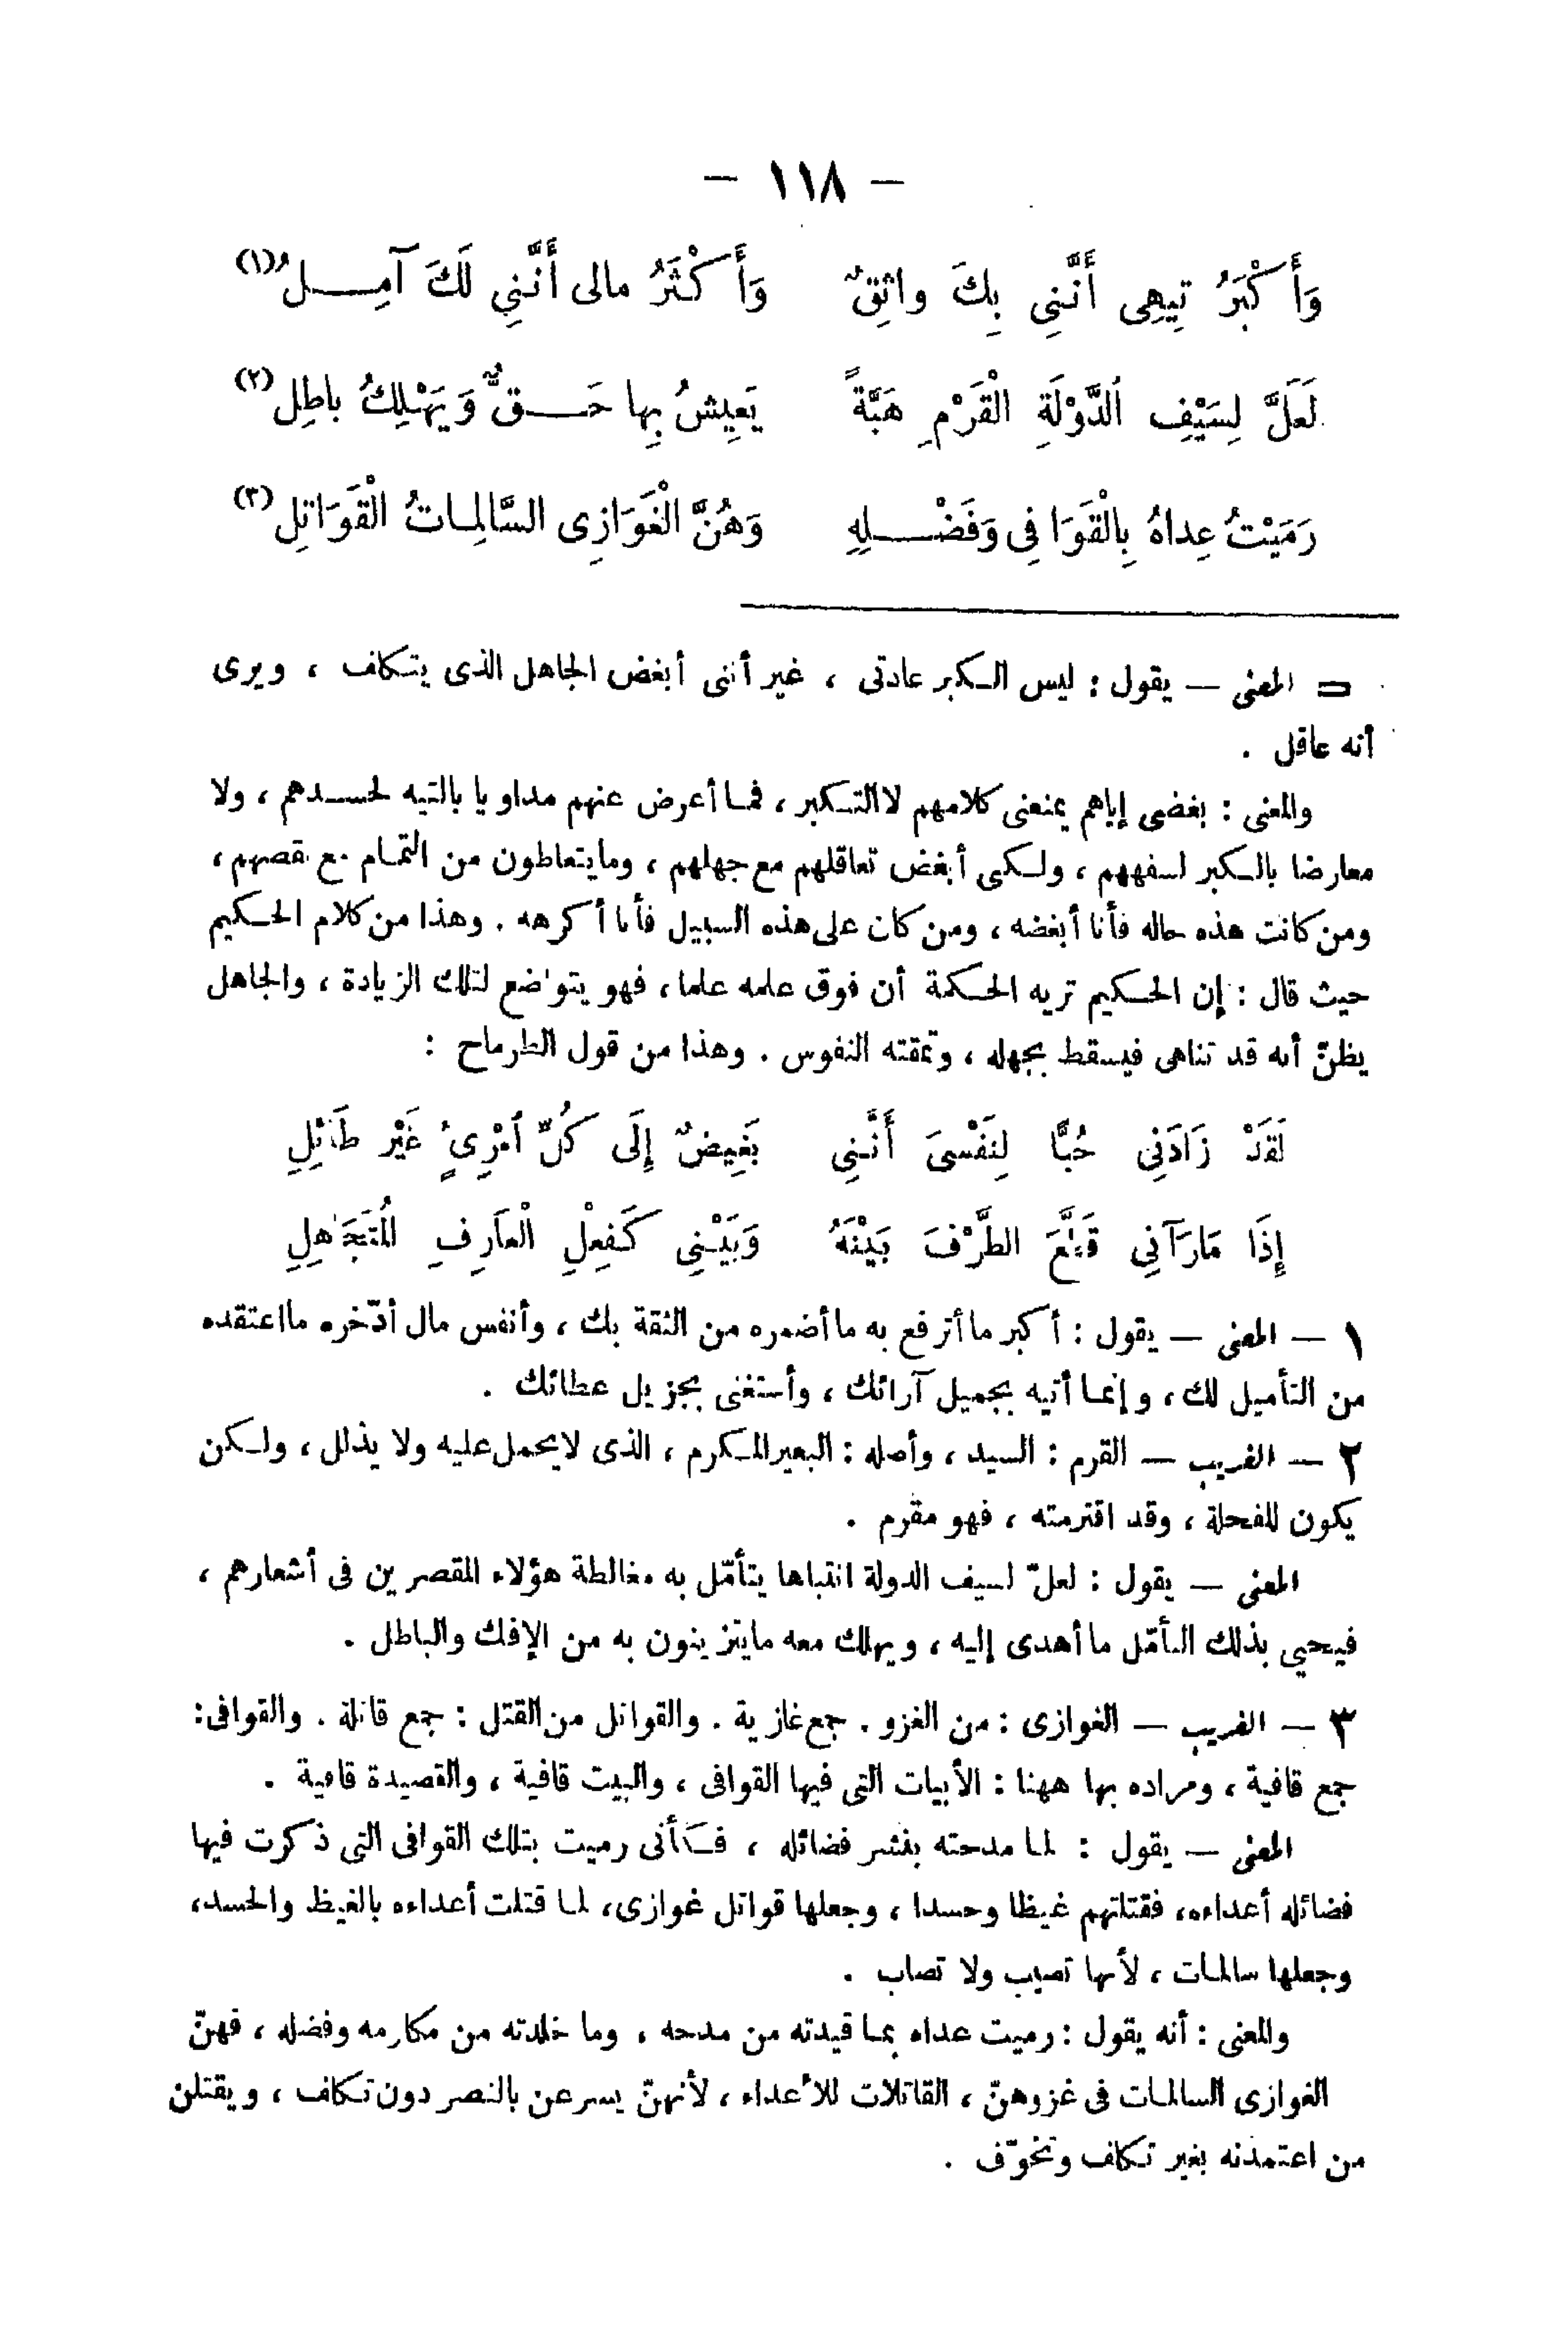 – ١١٨ –
وَأَكْبَرُ تِيهِى أَنَّنِي بِكَ واثِقٌ وَأَكْثَرُ مالى أَنَّنِي لَكَ آمِلُ (١)
لَعَلَّ لِسَيْفِ الدَّوْلَةِ الْقَرْمِ هَبَّةً يَعِيشُ بِها حَقٌّ وَيَهْلِكُ باطِل (٢)
رَمَيْتُ عِداهُ بِالْقَوَافِى وَفَضْلِهِ وَهُنَّ الْغَوَازِى السَّالِماتُ الْقَوَاتِل (٣)
= المعنى — يقول : ليس الكبر عادتى ، غير أننى أبغض الجاهل الذى يتكلف ، ويرى
أنه عاقل .
والمعنى : بغضى إياهم يمنعنى كلامهم لا التكبر ، فما أعرض عنهم مداويا بالتيه لحسدهم ، ولا
معارضا بالكبر لسفههم ، ولكى أبغض تعاقلهم مع جهلهم ، وما يتعاطون من التمام مع نقصهم ،
ومن كانت هذه حاله فأنا أبغضه ، ومن كان على هذه السبيل فأنا أكرهه . وهذا من كلام الحكيم
حيث قال : إن الحكيم تريه الحكمة أن فوق علمه علما ، فهو يتواضع لتلك الزيادة ، والجاهل
يظنّ أنه قد تناهى فيسقط بجهله ، وتمقته النفوس . وهذا من قول الطرماح :
لَقَدْ زَادَنِي حُبًّا لِنَفْسِىَ أَنَّنِي بَغِيضٌ إِلَى كُلِّ امْرِئٍ غَيْرِ طَائِلِ
إِذَا مَارَآنِي قَطَّعَ الطَّرْفَ بَيْنَهُ وَبَيْنِي كَفِعْلِ الْعَارِفِ الْمُتَجَاهِلِ
١ — المعنى — يقول : أكبر ما أترفع به ما أضمره من الثقة بك ، وأنفس مال أدّخره ما اعتقده
من التأميل لك ، وإنما أتيه بجميل آرائك ، وأستغنى بجزيل عطائك .
٢ — الغريب — القرم : السيد ، وأصله : البعير المكرم ، الذى لا يحمل عليه ولا يذلل ، ولكن
يكون للفحلة ، وقد اقترمته ، فهو مقرم .
المعنى — يقول : لعلّ لسيف الدولة انتباها يتأمّل به مغالطة هؤلاء المقصرين فى أشعارهم ،
فيحيي بذلك التأمّل ما أهدى إليه ، ويهلك معه ما يتزينون به من الإفك والباطل .
٣ — الغريب — الغوازى : من الغزو . جمع غازية . والقواتل من القتل : جمع قاتلة . والقوافى :
جمع قافية ، ومراده بها ههنا : الأبيات التى فيها القوافى ، والبيت قافية ، والقصيدة قافية .
المعنى — يقول : لما مدحته بنشر فضائله ، فكأنى رميت بتلك القوافى التى ذكرت فيها
فضائله أعداءه، فقتلتهم غيظا وحسدا ، وجعلها قواتل غوازى، لما قتلت أعداءه بالغيظ والحسد،
وجعلها سالمات ، لأنها تصيب ولا تصاب .
والمعنى : أنه يقول : رميت عداه بما قيدته من مدحه ، وما خلدته من مكارمه وفضله ، فهنّ
الغوازى السالمات فى غزوهنّ ، القاتلات للأعداء ، لأنهنّ يسرعن بالنصر دون تكلف ، ويقتلن
من اعتمدنه بغير تكلف وتخوّف .